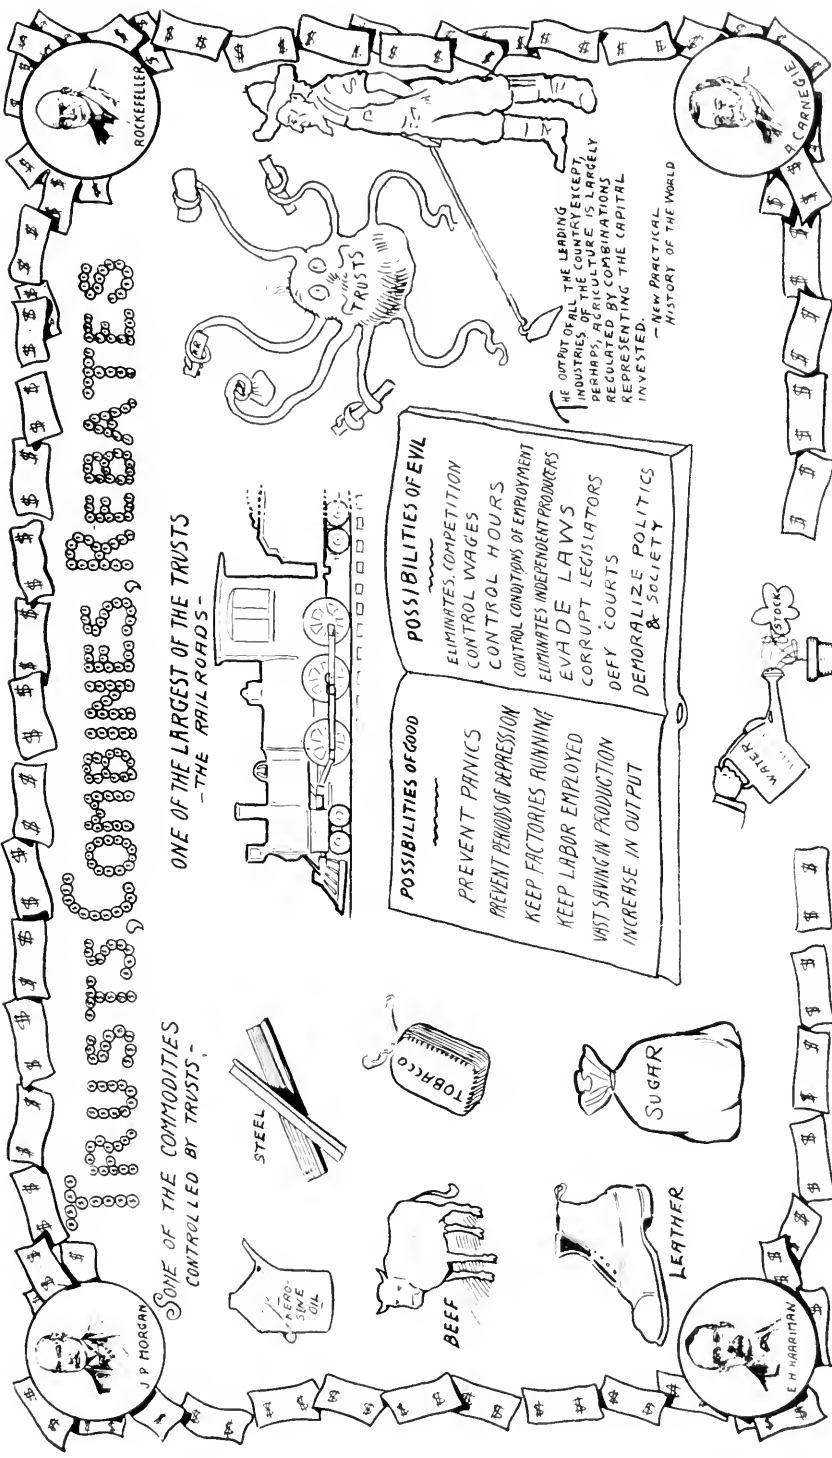 TRUSTS, COMBINES, REBATES
J P MORGAN
ROCKEFELLER
SOME OF THE COMMODITIES
CONTROLLED BY TRUSTS-
KERO-
SINE
OIL
STEEL
BEEF
TOBACCO
LEATHER
SUGAR
ONE OF THE LARGEST OF THE TRUSTS
-THE RAILROADS-
POSSIBILITIES OF GOOD
PREVENT PANICS
PREVENT PERIODS OF DEPRESSION
KEEP FACTORIES RUNNING
KEEP LABOR EMPLOYED
VAST SAVING IN PRODUCTION
INCREASE IN OUTPUT
POSSIBILITIES OF EVIL
ELIMINATES COMPETITION
CONTROL WAGES
CONTROL HOURS
CONTROL CONDITIONS OF EMPLOYMENT
ELIMINATES INDEPENDENT PRODUCERS
EVADE LAWS
CORRUPT LEGISLATORS
DEFY COURTS
DEMORALIZE POLITICS
& SOCIETY
TRUSTS
THE OUTPUT OF ALL THE LEADING
INDUSTRIES OF THE COUNTRY EXCEPT,
PERHAPS, AGRICULTURE IS LARGELY
REGULATED BY COMBINATIONS
REPRESENTING THE CAPITAL
INVESTED.
-NEW PRACTICAL
HISTORY OF THE WORLD
WATER
STOCK
E H HARRIMAN
A. CARNEGIE